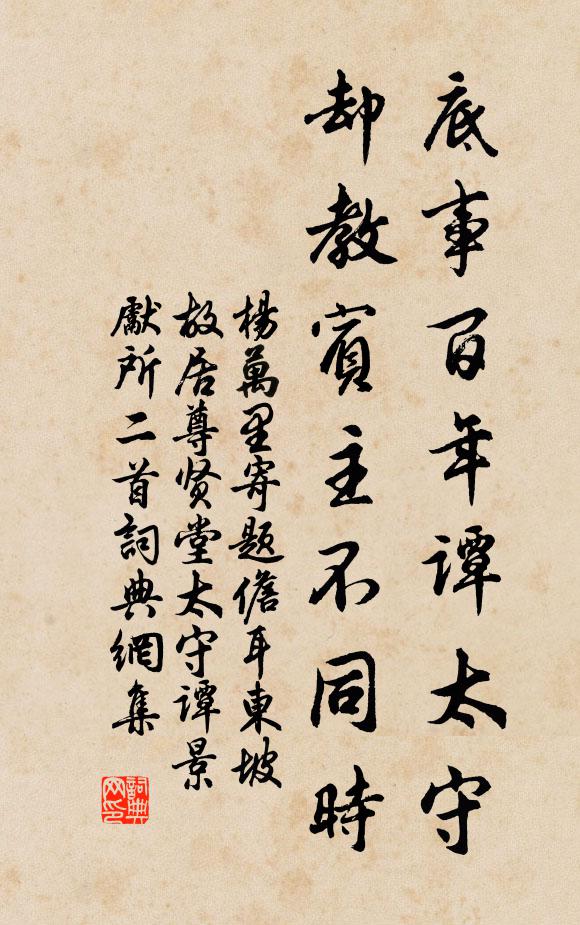 底事百年譚太守
却教賓主不同時
楊萬里寄題儋耳東坡
故居尊賢堂太守譚景
獻所二首詞典網集
詞典網印